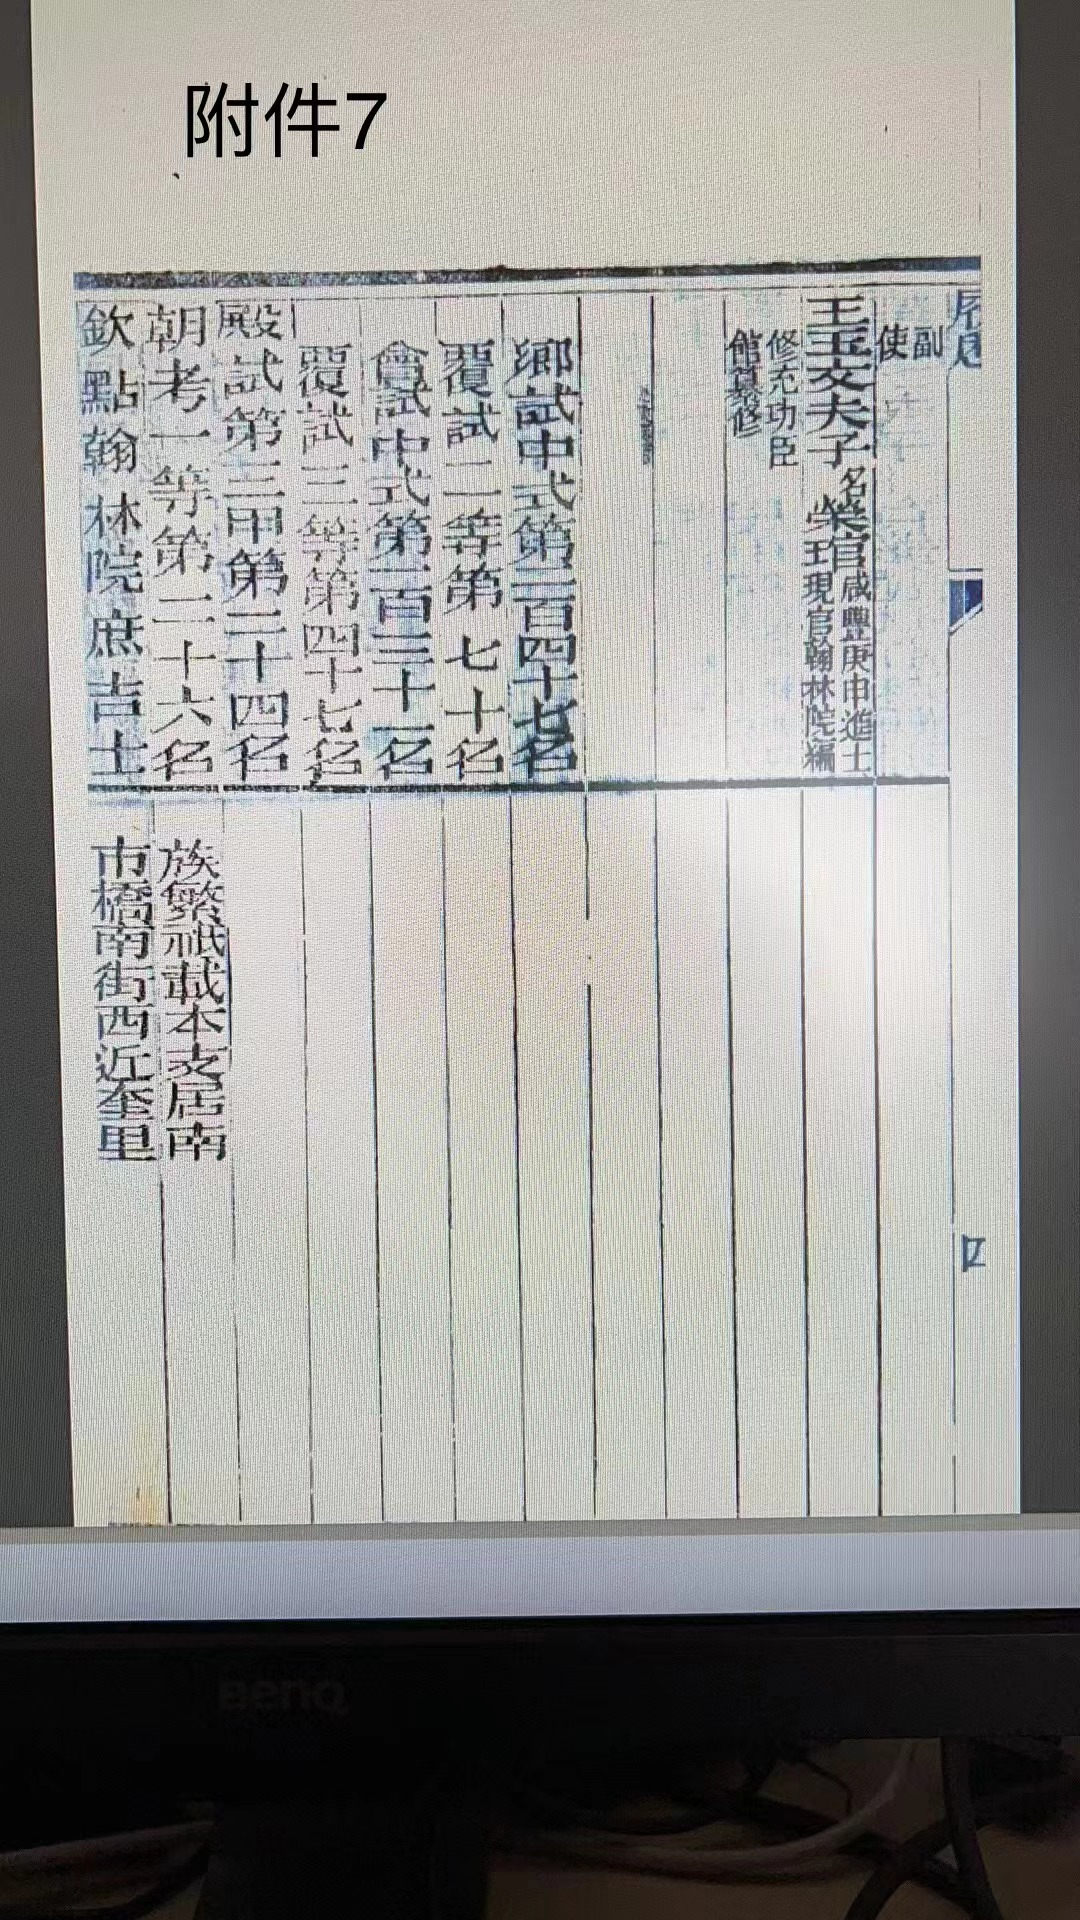 附件7
副
使
王玉文夫子名榮琯咸豐庚申進士
現官翰林院編
修充功臣
館纂修
鄉試中式第二百四十七名
覆試二等第七十名
會試中式第一百三十一名
覆試三等第四十七名
殿試第三甲第二十四名
朝考一等第二十六名
欽點翰林院庶吉士
族繁祇載本支居南
市橋南街西近奎里
BenQ